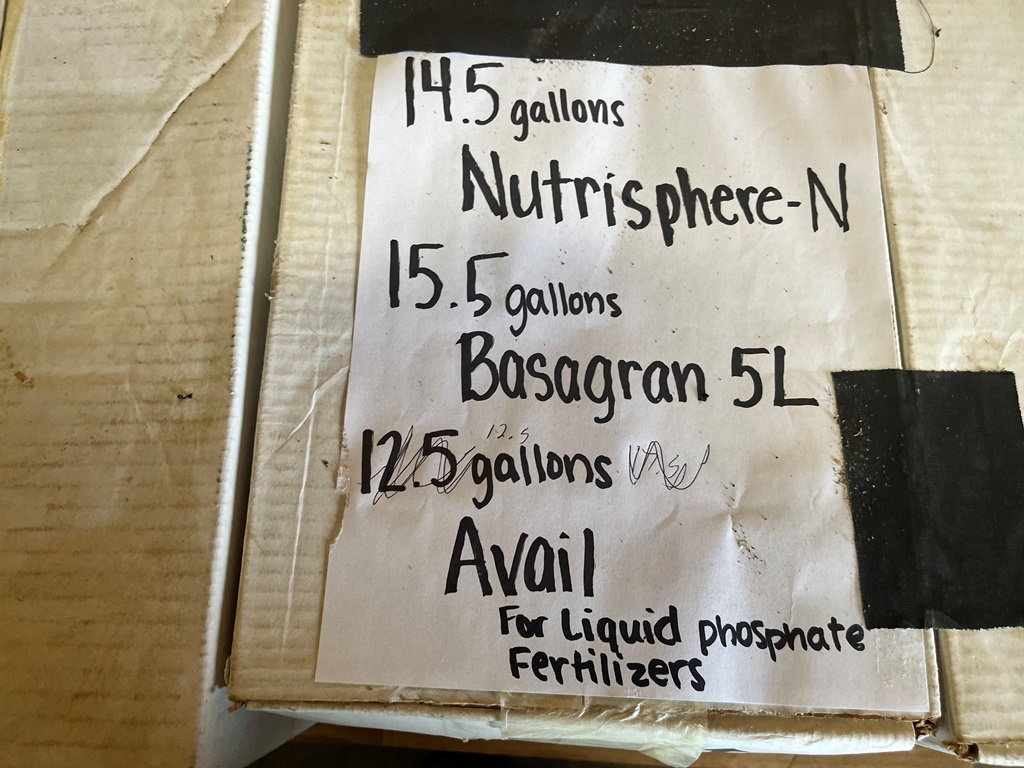 14.5 gallons
Nutrisphere-N
15.5 gallons
Basagran 5L
12.5
12.5 gallons
Avail
For Liquid phosphate
Fertilizers